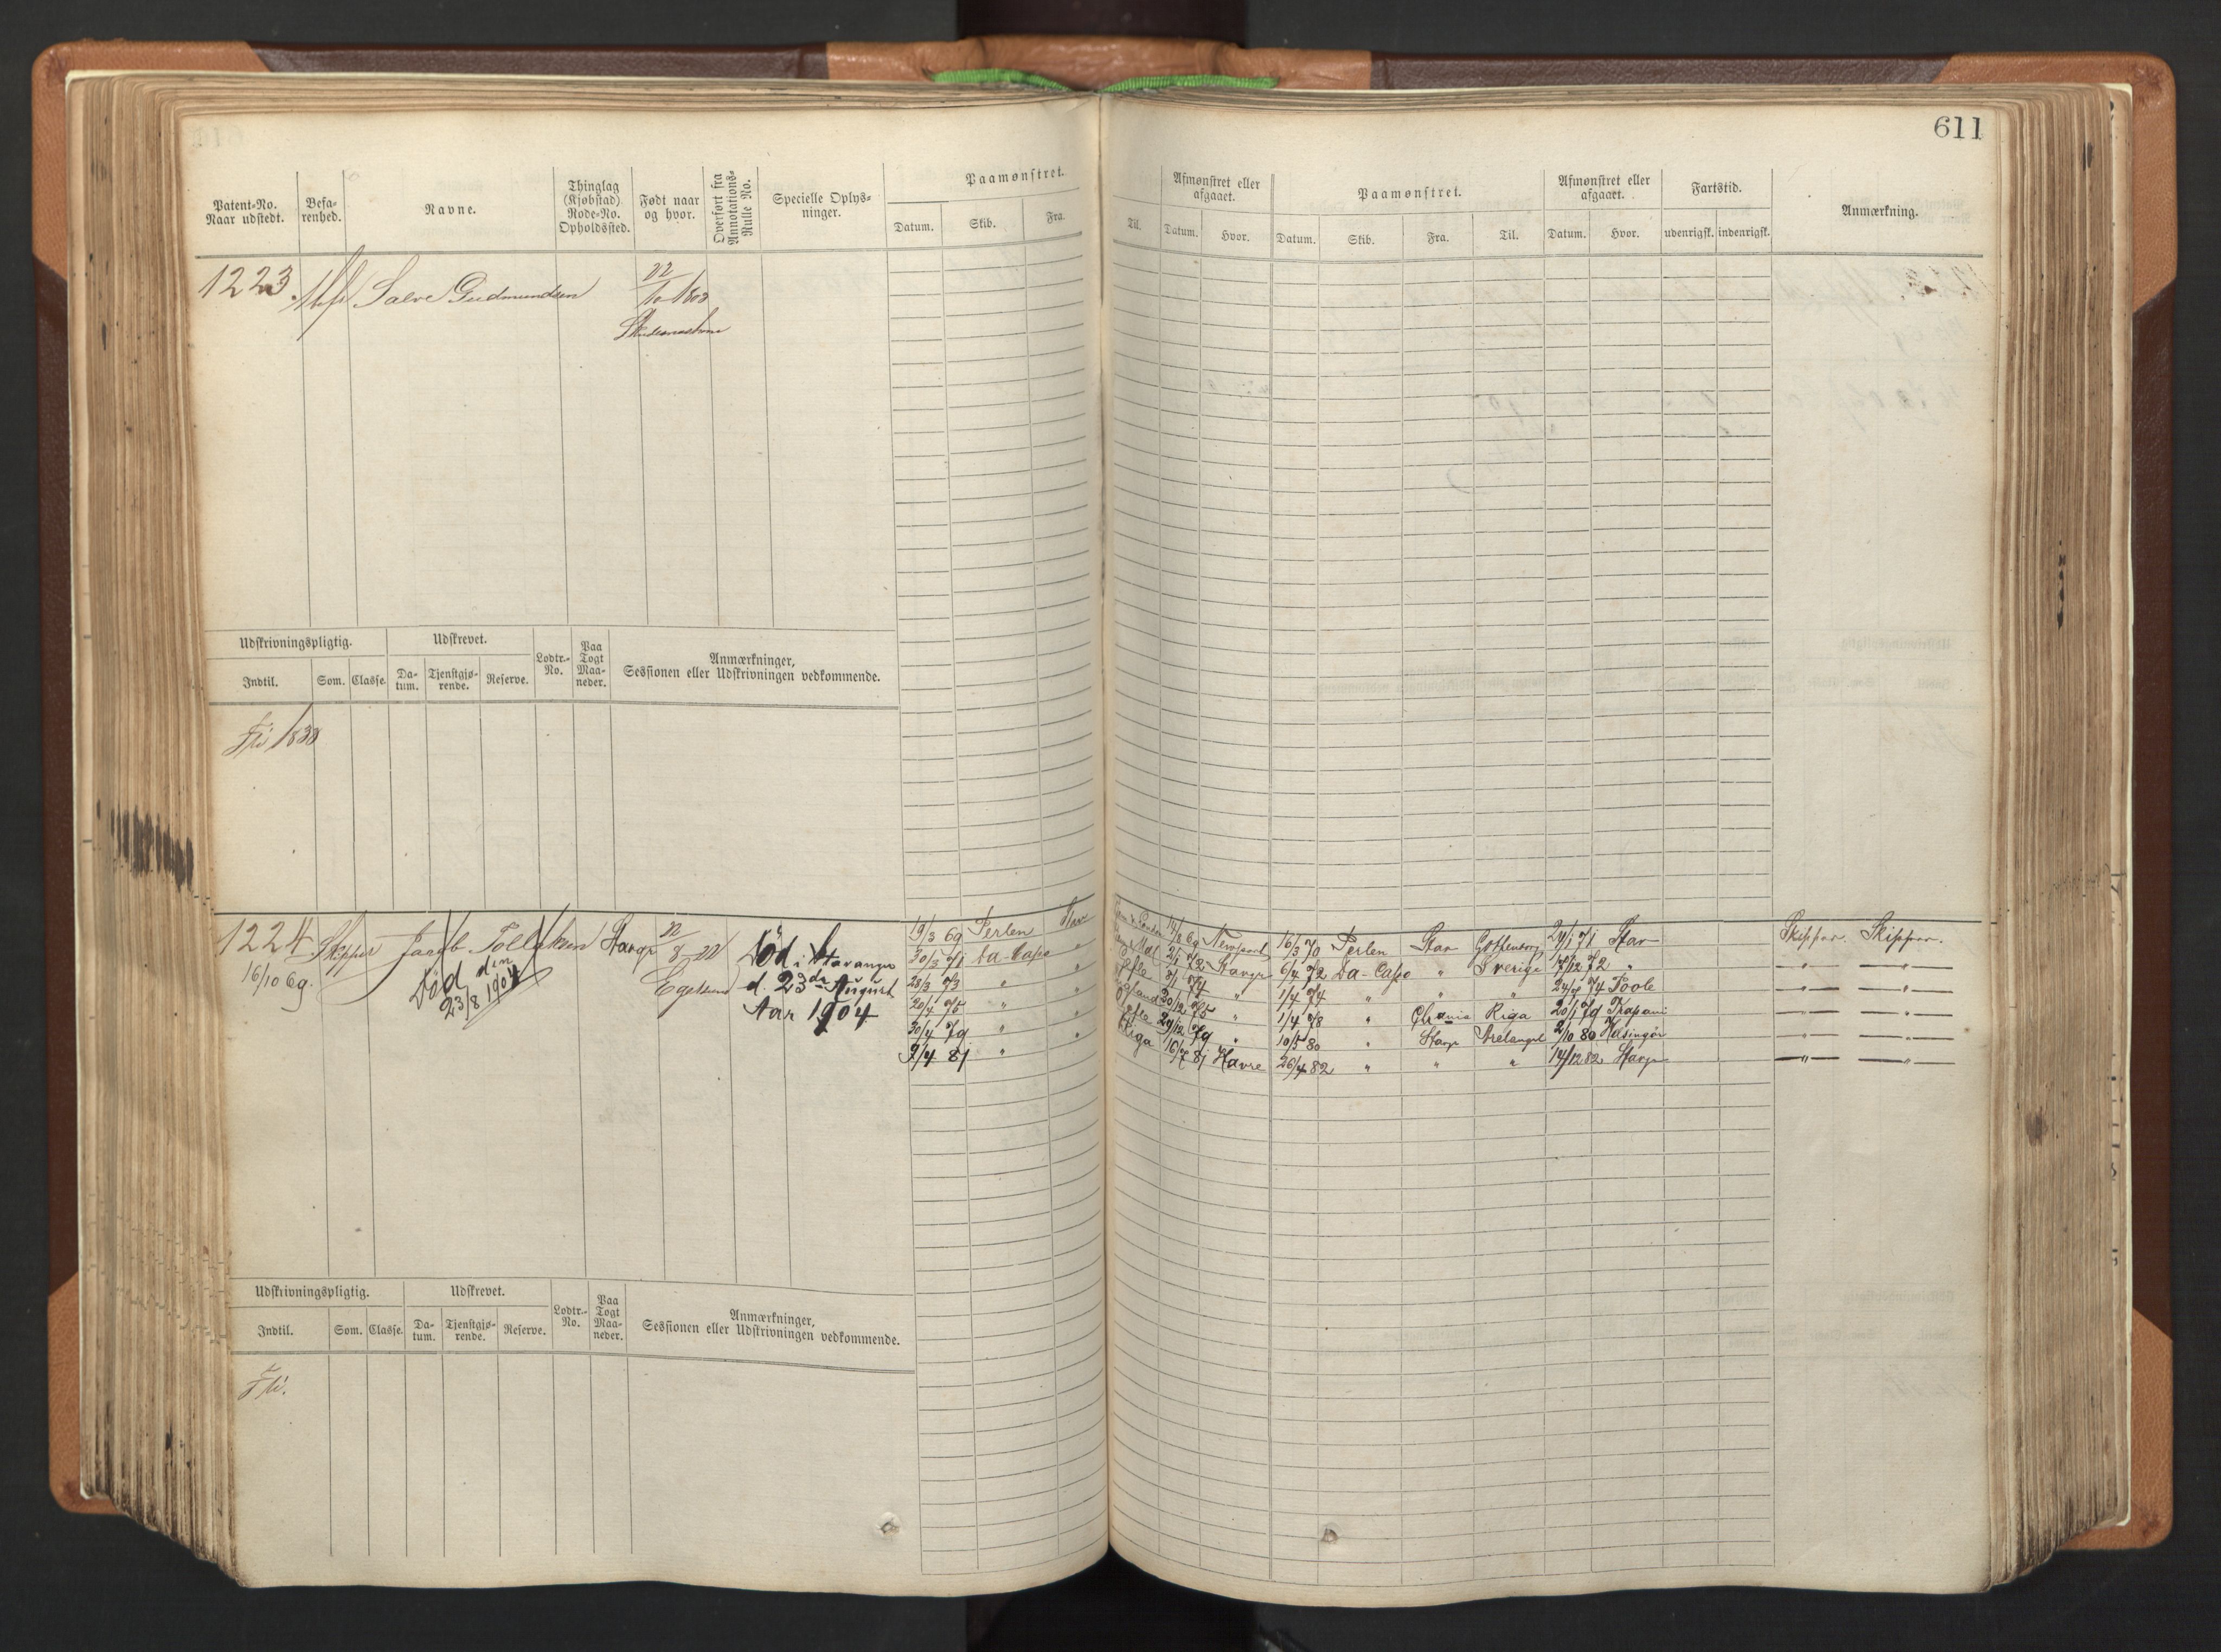 611
Patent-No. Naar udstedt.
Befarenhed.
Navne.
Thinglag (Kjøbstad) Rode-No. Opholdssted.
Født naar og hvor.
Overført fra Annotations-Rulle No.
Specielle Oplysninger.
Paamønstret.
Datum. Skib. Fra.
Til.
Afmønstret eller afgaaet.
Datum. Hvor.
Paamønstret.
Datum. Skib. Fra. Til.
Afmønstret eller afgaaet.
Datum. Hvor.
Fartstid.
udenrigsk. indenrigsk.
Anmærkning.
1223. Salve Gudmundsen
22/10 1803
Udskrivningspligtig. Udskrevet. Lodtr.-No. Paa Togt Maaneder. Anmærkninger, Sessionen eller Udskrivningen vedkommende.
Indtil. Som. Classe. Datum. Tjenstgjørende. Reserve.
1224 Skipper Jacob Tollaksen Stavgr Død i Stavanger
16/10 69. Død den Egersund d. 23de August
23/8 1904 Aar 1904
19/3 69 Perlen Stav 69 Newport 16/3 70 Perlen Stav Gothenborg 24/1 71 Stav Skipper. Skipper.
30/3 71 Da-Capo " 72 Stavgr 6/4 72 Da-Capo " Sverige 17/12 72 " —"— —"—
28/3 73 " " 74 " 1/4 74 " " " 74 Poole —"— —"—
20/4 75 " 20/12 75 " 1/4 78 " Chania Riga 20/1 79 Trapani —"— —"—
30/4 79 " " 29/12 79 " 10/5 80 " Stavgr 2/10 80 Helsingör —"— —"—
7/4 81 " Riga 81 Havre 26/4 82 " " " 14/12 82 Stavgr —"— —"—
Udskrivningspligtig. Udskrevet. Lodtr.-No. Paa Togt Maaneder. Anmærkninger, Sessionen eller Udskrivningen vedkommende.
Indtil. Som. Classe. Datum. Tjenstgjørende. Reserve.